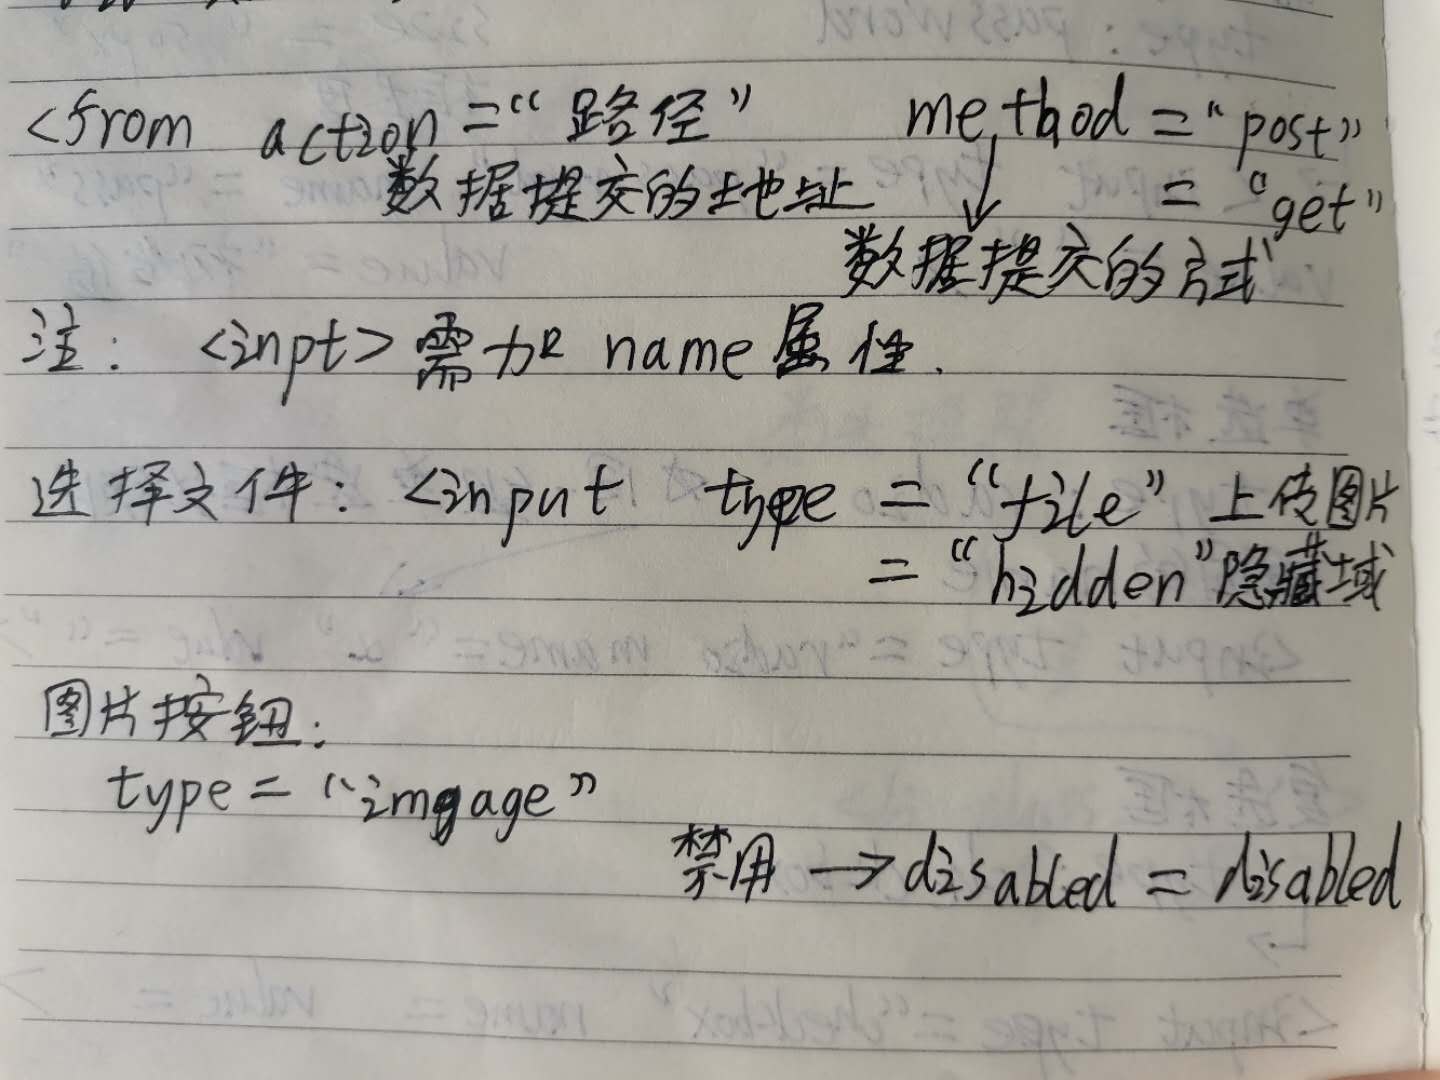 <from action="路径" method="post"
数据提交的地址 ="get"
数据提交的方式
注: <inpt>需加name属性.
选择文件: <input type="file"上传图片
="hidden"隐藏域
图片按钮:
type="imgage"
禁用→disabled=disabled